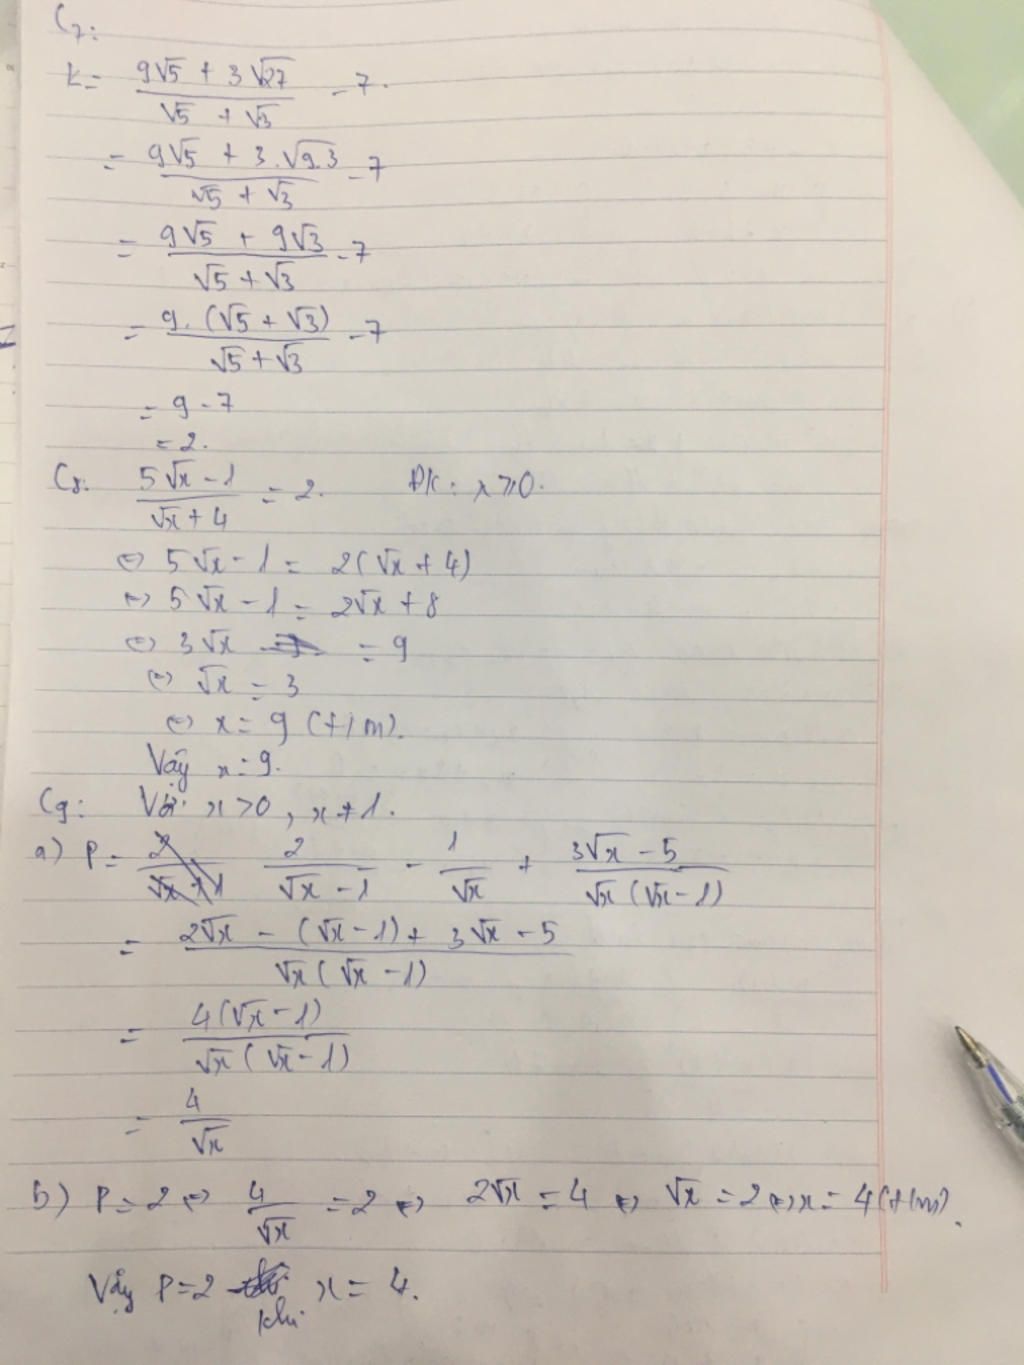 C7:
K = (9√5 + 3√27)/(√5 + √3) - 7.
= (9√5 + 3.√9.3)/(√5 + √3) - 7
= (9√5 + 9√3)/(√5 + √3) - 7
= (9.(√5 + √3))/(√5 + √3) - 7
= 9 - 7
= 2.
C8: (5√x - 1)/(√x + 4) = 2. ĐK: x ≥ 0.
⇔ 5√x - 1 = 2(√x + 4)
⇔ 5√x - 1 = 2√x + 8
⇔ 3√x = 9
⇔ √x = 3
⇔ x = 9 (t/m).
Vậy x = 9.
C9: Với x > 0, x ≠ 1.
a) P = 2/(√x - 1) - 1/√x + (3√x - 5)/(√x(√x - 1))
= (2√x - (√x - 1) + 3√x - 5)/(√x(√x - 1))
= (4(√x - 1))/(√x(√x - 1))
= 4/√x
b) P = 2 ⇔ 4/√x = 2 ⇔ 2√x = 4 ⇔ √x = 2 ⇔ x = 4 (t/m).
Vậy P = 2 khi x = 4.